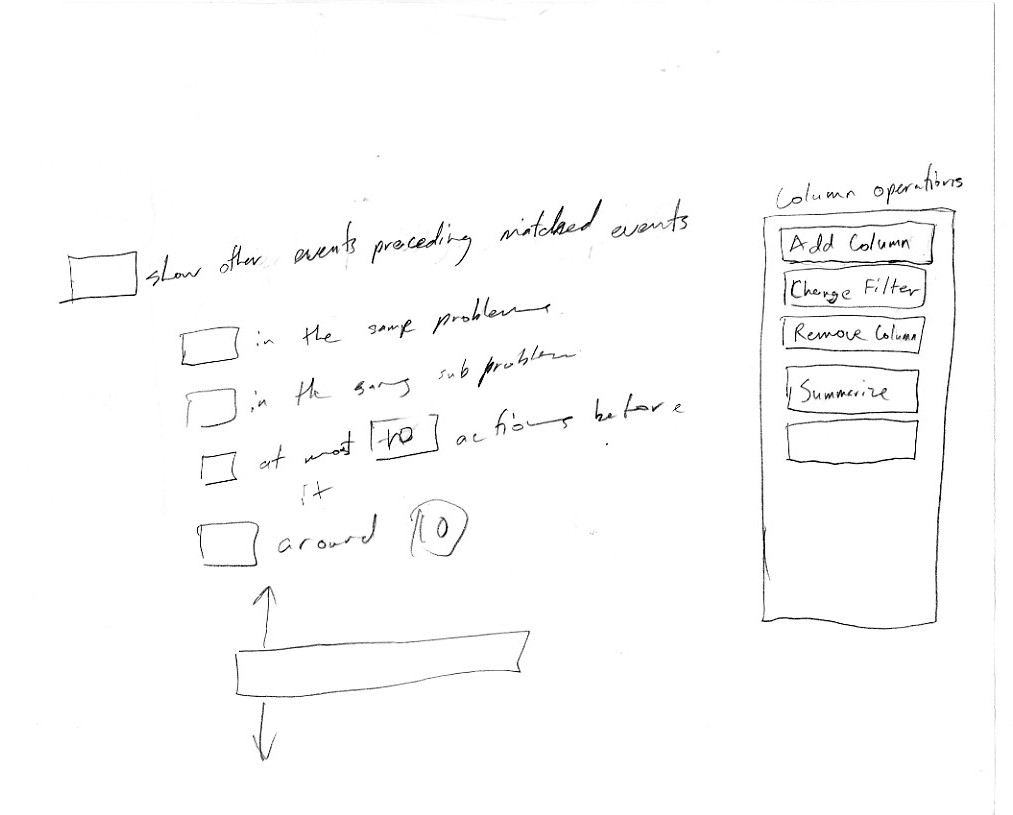 Column operations
show other events preceding matched events
Add Column
Change Filter
in the same problem
Remove Column
in the same sub problem
Summarize
at most 10 actions before
it
around 10